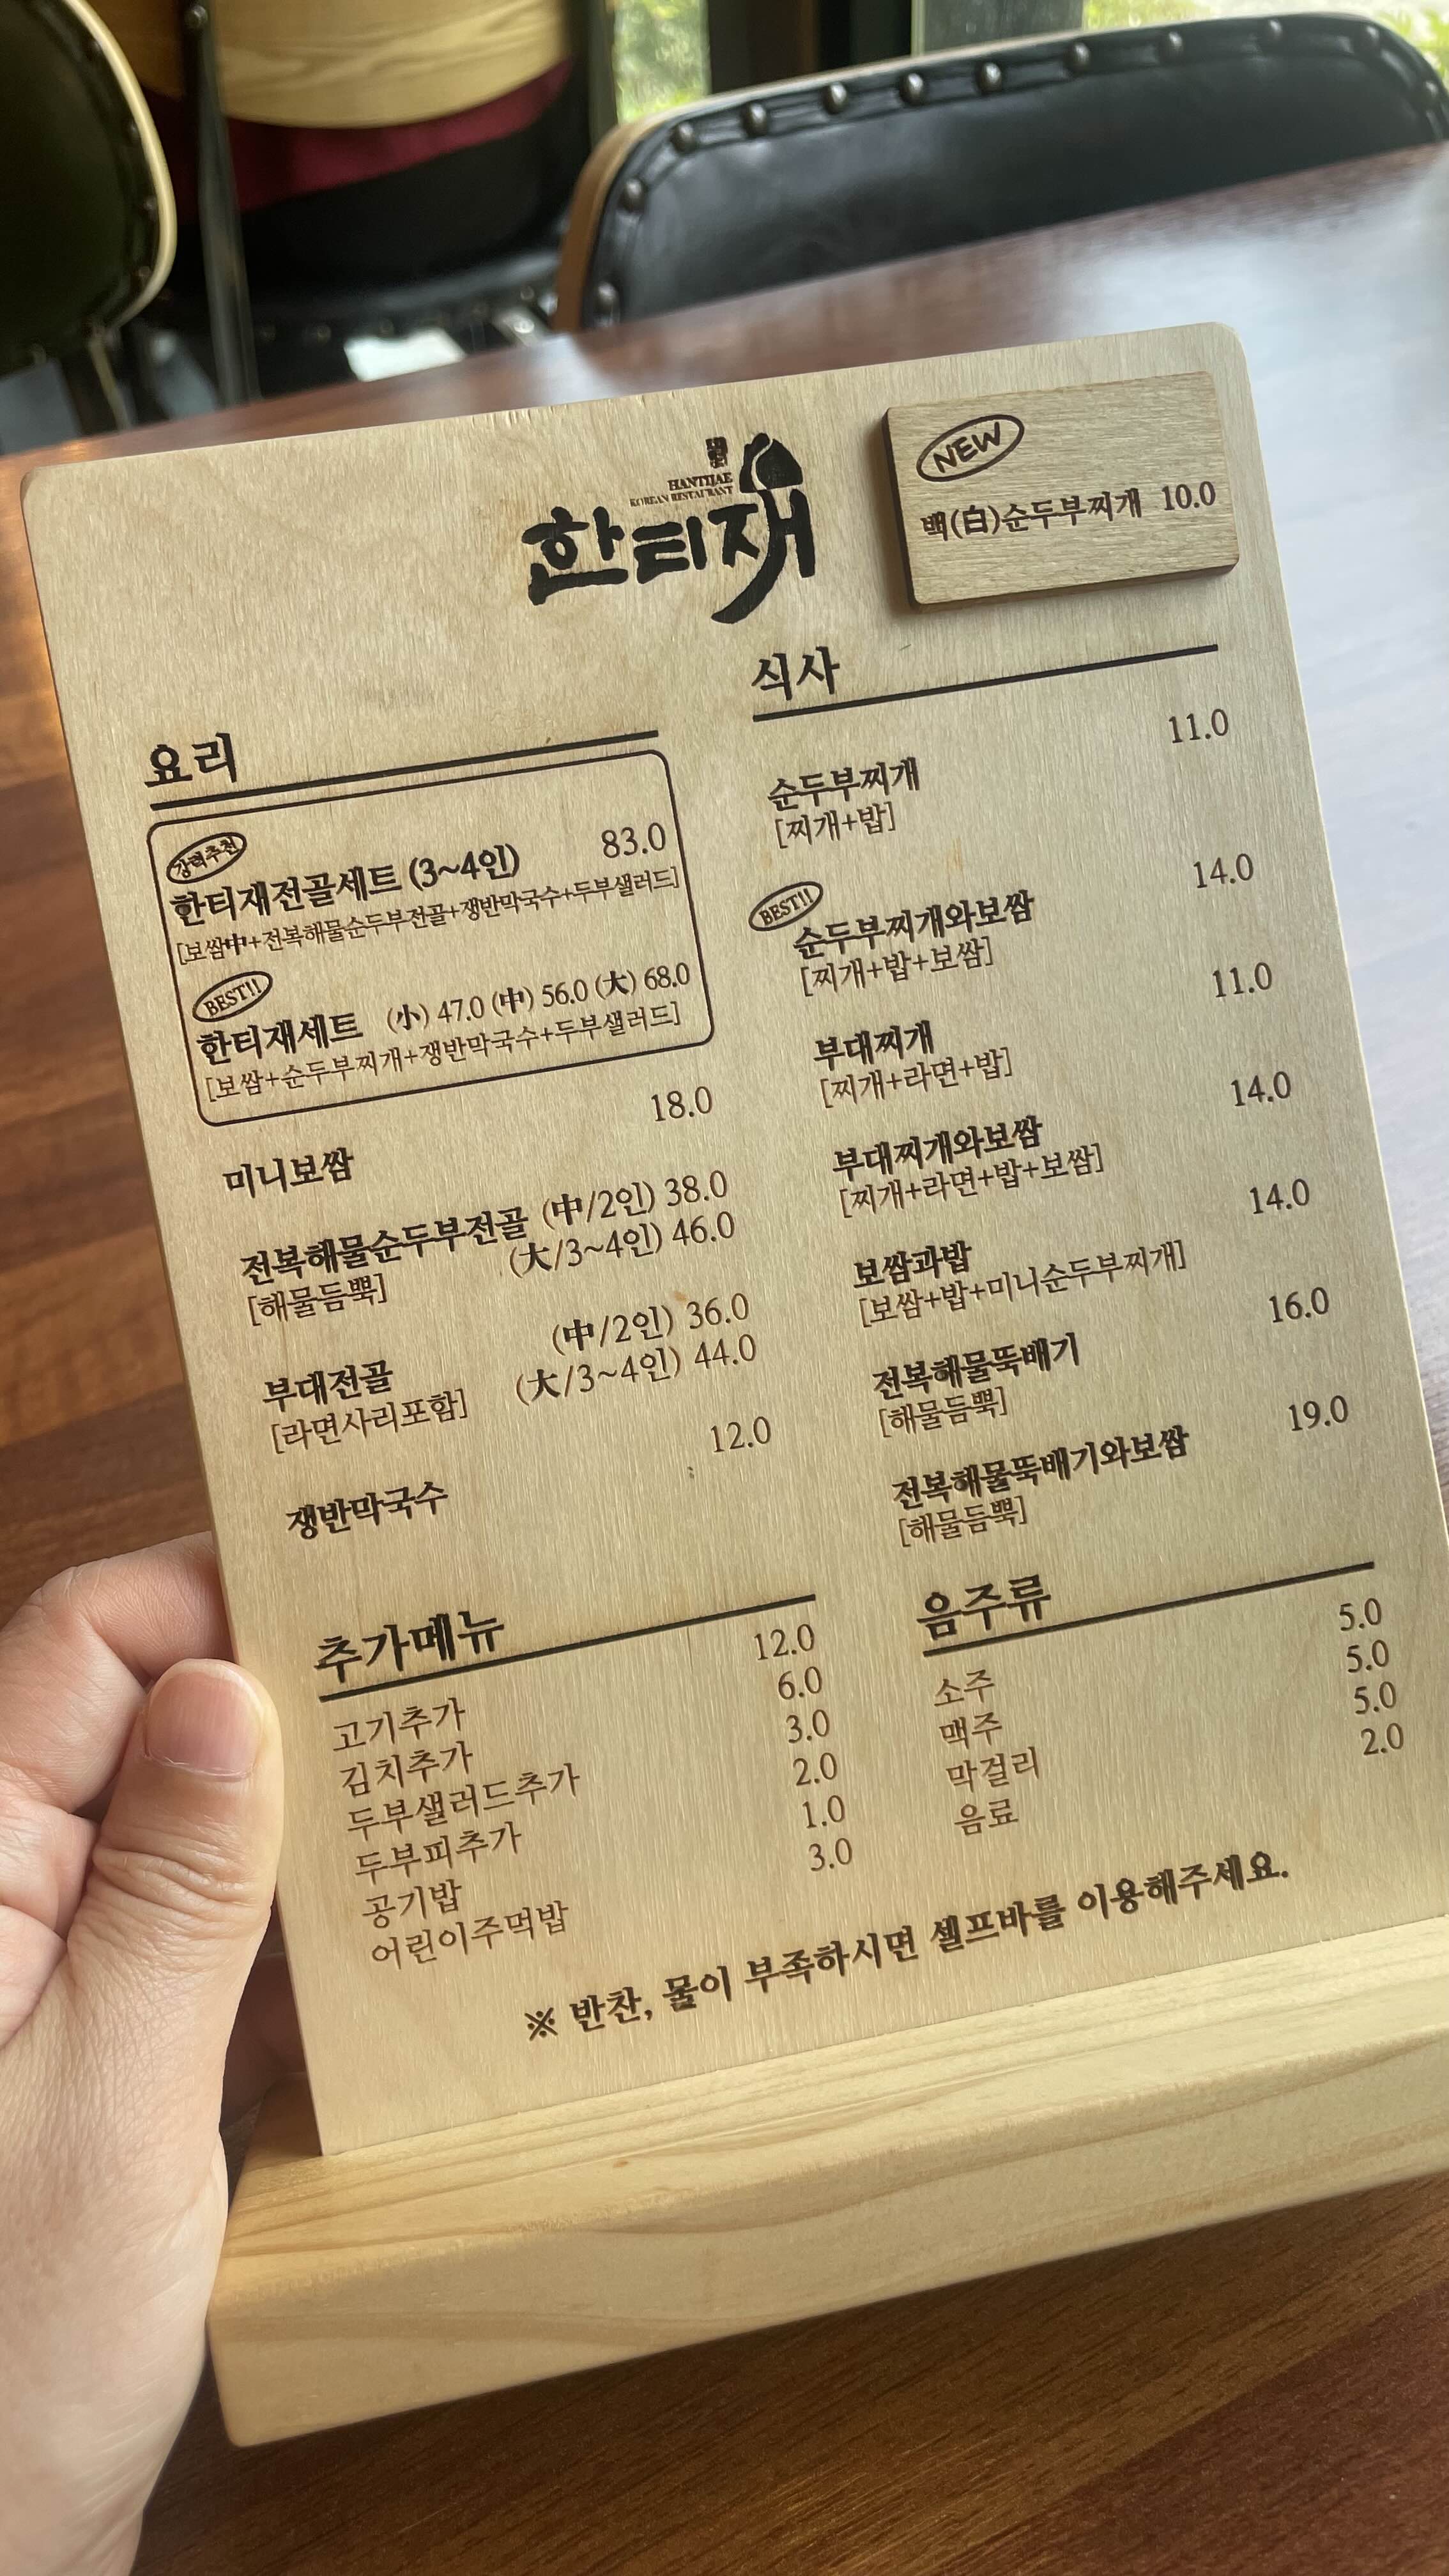 HANTIJAE
KOREAN RESTAURANT
한티재
NEW
백(白)순두부찌개 10.0
요리
강력추천
한티재전골세트 (3~4인) 83.0
[보쌈中+전복해물순두부전골+쟁반막국수+두부샐러드]
BEST!!
한티재세트 (小) 47.0 (中) 56.0 (大) 68.0
[보쌈+순두부찌개+쟁반막국수+두부샐러드]
미니보쌈 18.0
전복해물순두부전골 (中/2인) 38.0
(大/3~4인) 46.0
[해물듬뿍]
(中/2인) 36.0
부대전골 (大/3~4인) 44.0
[라면사리포함]
쟁반막국수 12.0
식사
순두부찌개 11.0
[찌개+밥]
BEST!!
순두부찌개와보쌈 14.0
[찌개+밥+보쌈]
부대찌개 11.0
[찌개+라면+밥]
부대찌개와보쌈 14.0
[찌개+라면+밥+보쌈]
보쌈과밥 14.0
[보쌈+밥+미니순두부찌개]
전복해물뚝배기 16.0
[해물듬뿍]
전복해물뚝배기와보쌈 19.0
[해물듬뿍]
추가메뉴
고기추가 12.0
김치추가 6.0
두부샐러드추가 3.0
두부피추가 2.0
공기밥 1.0
어린이주먹밥 3.0
음주류
소주 5.0
맥주 5.0
막걸리 5.0
음료 2.0
※ 반찬, 물이 부족하시면 셀프바를 이용해주세요.